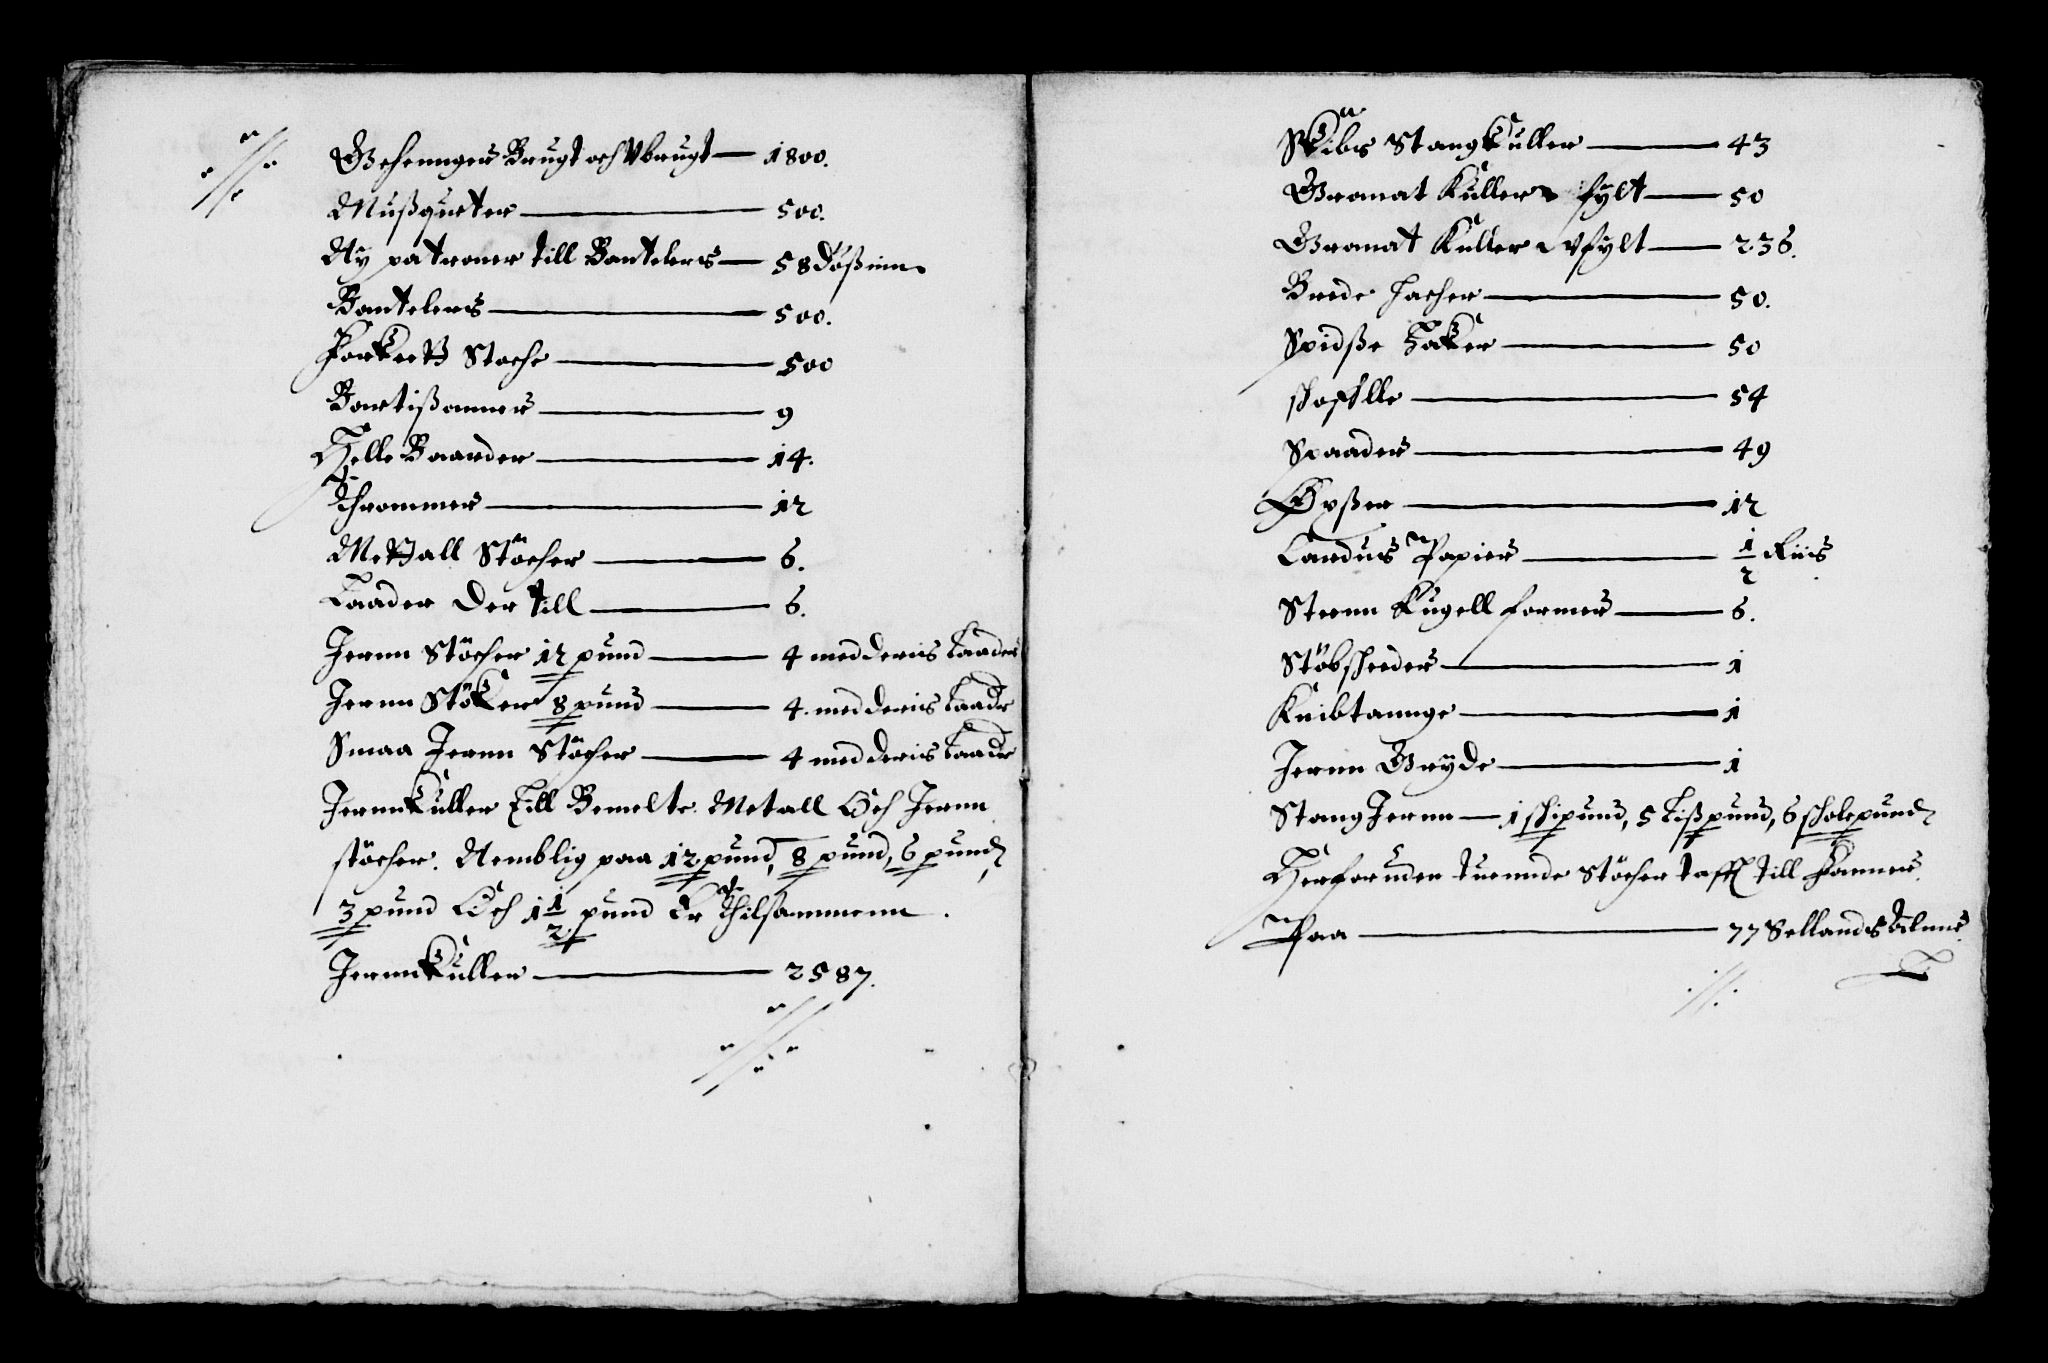 Gehennger Brugt och Vbrugt — 1800.
Mußqueter — 500.
Ny patroner till Bantelers — 58 Dößinn
Bantelers — 500.
Forkeetz Stoche — 500
Bartißanner — 9
Helle Baarder — 14.
Thrommer — 12
Metzall Stöcher — 6.
Laader der till — 6.
Jernn Stöcher 12 pund — 4 med deriis Laader
Jernn Stöker 8 pund — 4. med deriis Laader
Smaa Jernn Stöcher — 4 med deriis Laader
Jernnkuller till Bemelte Metall Och Jernn
stöcher. Nemblig paa 12 pund, 8 pund, 6 pund,
3 pund Och 1 1/2 pund Er Thilsammenn.
Jernnkuller — 2587.
Skibs Stangkuller — 43
Granat Kuller fylt — 50
Granat Kuller Vfylt — 236.
Brede Hacher — 50.
Spidße Haker — 50
skoffle — 54
Spaader — 49
Øxßer — 12
Cardus Papier — 1/2 Riis
Steenn Kugell former — 6.
Stöbskeeder — 1
Knibtannge — 1
Jernn Gryde — 1
Stang Jernn — 1 skipund, 5 Lißpund, 6 skolepund
Herforuden tuennde Stöcher taff till Fanner
Paa — 77 Sellands Alnne